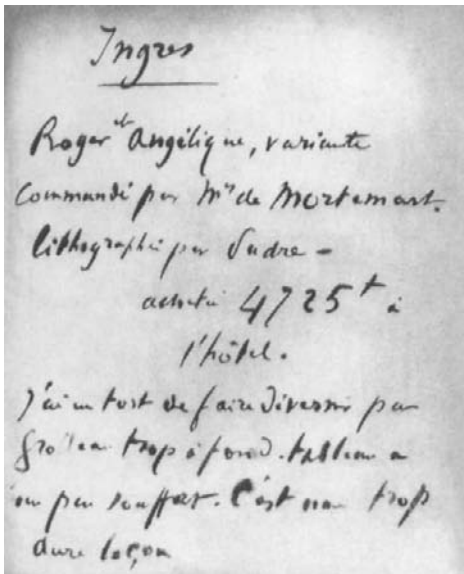 Ingres
Roger et Angélique, variante
Commandé par Mr de Mortemart.
lithographié par Sudre -
acheté 4725 à
l'hôtel.
J'ai eu tort de faire dévernir par
trop à fond. tableau a
un peu souffert. C'est une trop
dure leçon